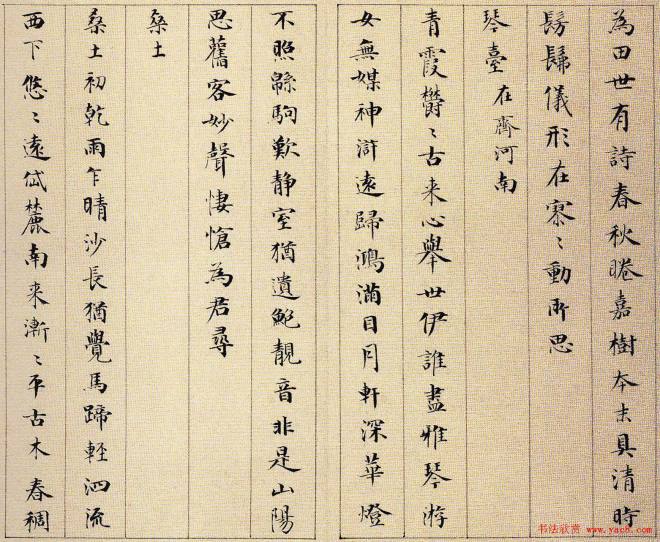 為田世有詩春秋睠嘉樹本末具清時
髣髴儀形在寥〻動所思
琴臺在齊河南
青霞欝〻古来心舉世伊誰盡雅琴游
女無媒神滸遠歸鴻滿目月軒深華燈
不照緜駒歎静室猶遺鮑靚音非是山陽
思舊客妙聲悽愴為君尋
桑土
桑土初乾雨乍晴沙長猶覺馬蹄輕泗流
西下悠〻遠岱麓南来漸〻平古木春稠
书法欣赏 www.yac8.com